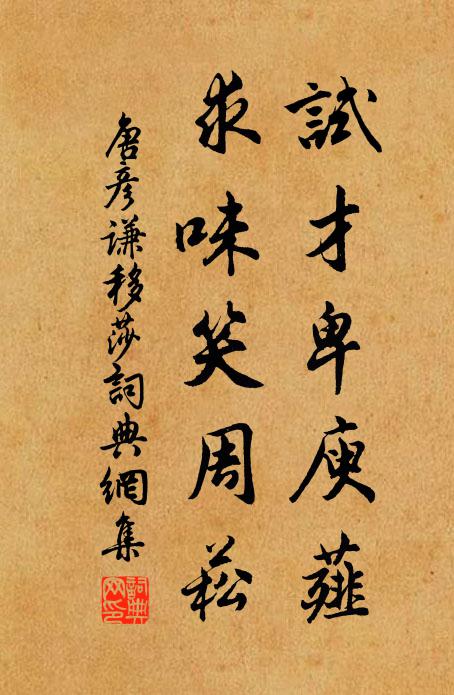 試才卑庾薤
求味笑周菘
唐彥謙移莎詞典網集
詞典网印